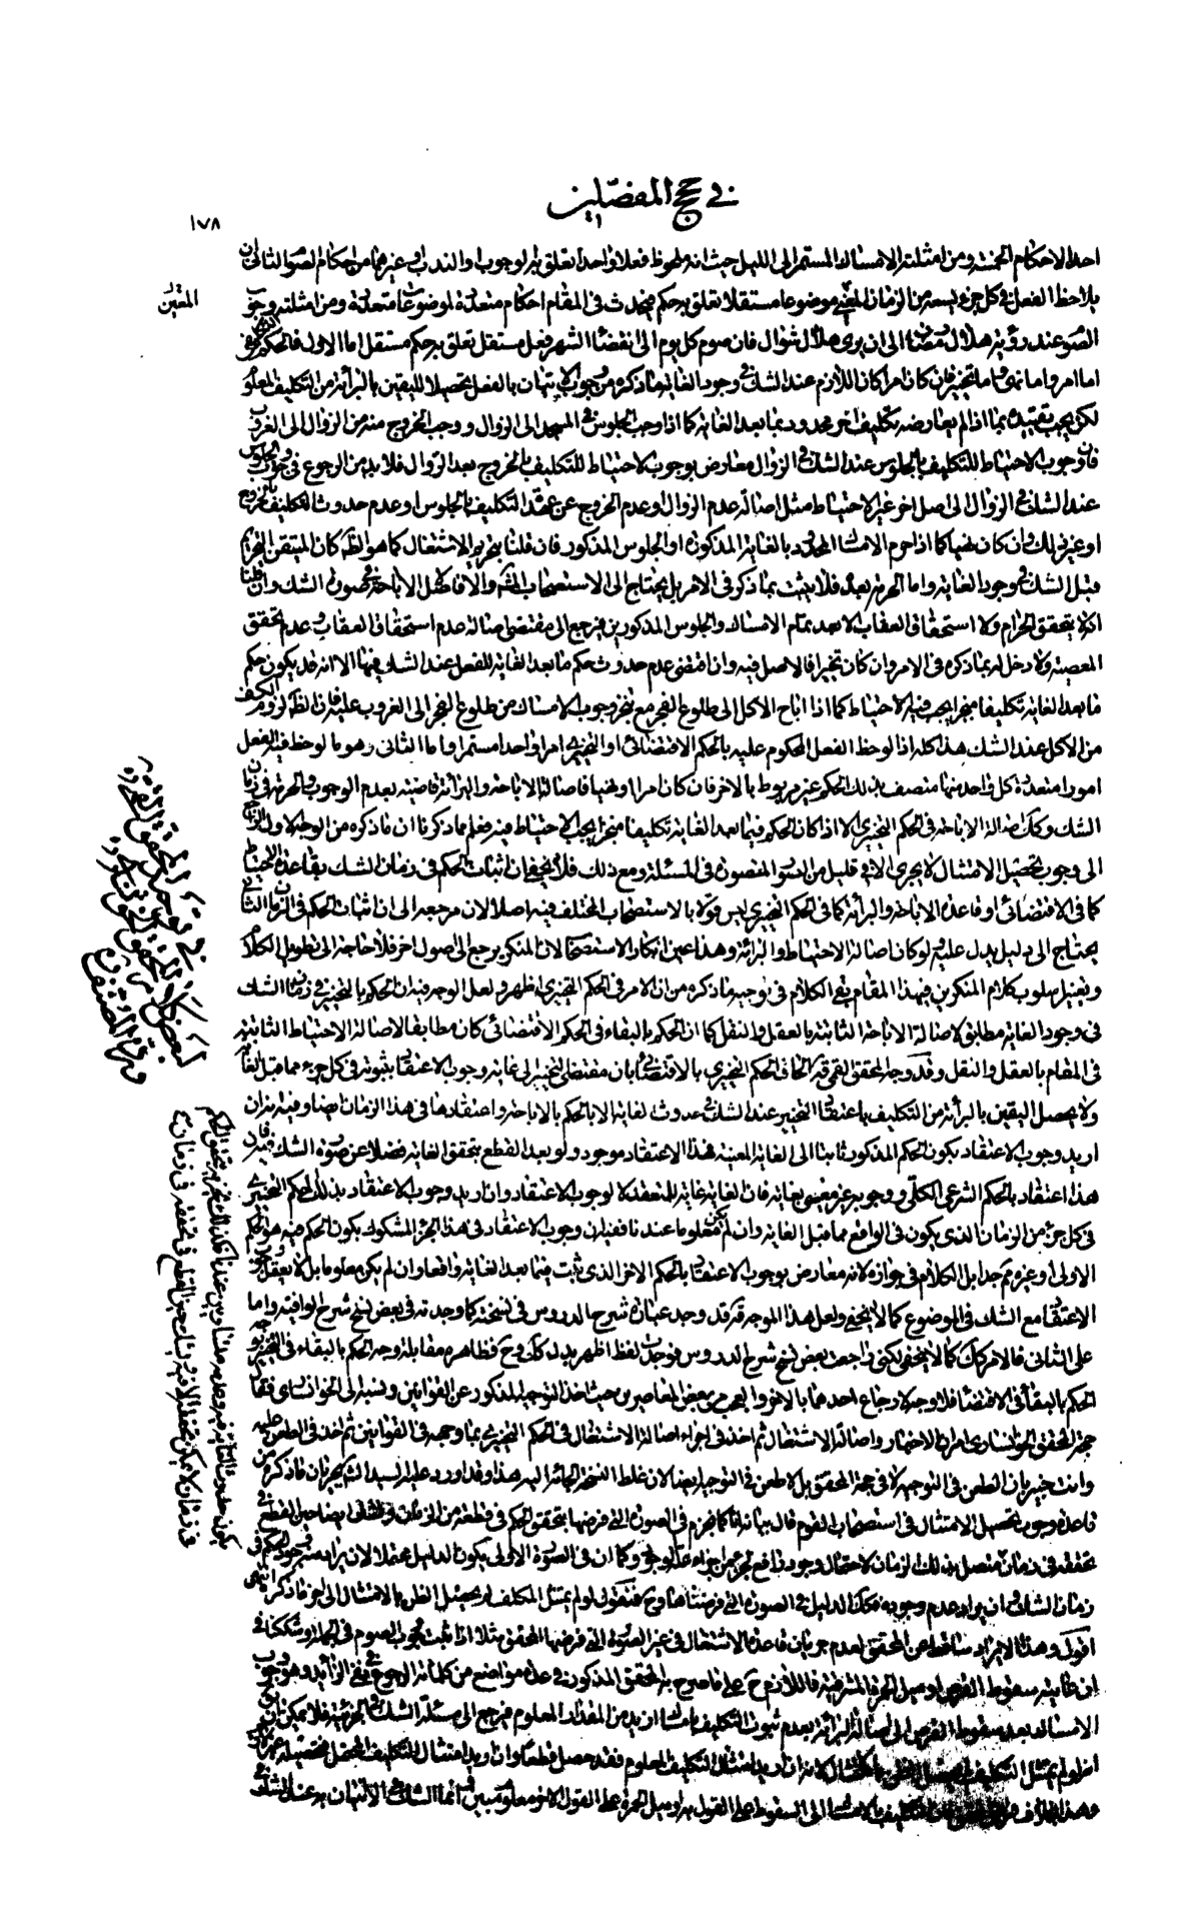 في حجج المفصّلين
١٧٨
احد الاحكام الخمسة ومن امثلته الامساك المستمر الى الليل حيث انه ملحوظ فعلا واحدا تعلق به الوجوب او الندب او غيرهما من احكام الصوم الثاني ان
يلاحظ الفعل في كل جزء يسعه من الزمان المغيى موضوعا مستقلا تعلق به حكم فيحدث في المقام احكام متعددة لموضوعات متعددة ومن امثلته وجوب
الصوم عند رؤية هلال رمضان الى ان يرى هلال شوال فان صوم كل يوم الى انقضاء الشهر فعل مستقل تعلق به حكم مستقل اما الاول فالحكم
اما امر واما نهي واما تخيير فان كان امرا كان اللازم عند الشك في وجود الغاية ما ذكره من وجوب الاتيان بالفعل تحصيلا لليقين بالبرائة من التكليف المعلوم
لكن يجب تقييده بما اذا لم يعارضه تكليف اخر محدود بما بعد الغاية كما اذا وجب الجلوس في المسجد الى الزوال ووجب الخروج منه من الزوال الى الغروب
فان وجوب الاحتياط للتكليف بالجلوس عند الشك في الزوال معارض بوجوب الاحتياط للتكليف بالخروج بعد الزوال فلا بد من الرجوع في وجوب الجلوس
عند الشك في الزوال الى اصل اخر غير الاحتياط مثل اصالة عدم الزوال او عدم الخروج عن عهدة التكليف بالجلوس او عدم حدوث التكليف بالخروج
او غير ذلك وان كان نهيا كما اذا حرم الامساك المحدود بالغاية المذكورة او الجلوس المذكور فان قلنا بتحريم الاشتغال كما هو الظ كان المتيقن التحريم
قبل الشك في وجود الغاية واما الحرمة بعده فلا يثبت بما ذكر في الامر بل يحتاج الى الاستصحاب المش والا فالاصل الاباحة في صورة الشك وان قلنا
انه لا يتحقق الحرام ولا استحقاق العقاب الا بعد تمام الامساك والجلوس المذكورين فيرجع الى مقتضى اصالة عدم استحقاق العقاب وعدم تحقق
المعصية ولا دخل له بما ذكره في الامر وان كان تخييرا فالاصل فيه وان اقتضى عدم حدوث حكم ما بعد الغاية للفعل عند الشك فيها الا انه قد يكون حكم
ما بعد الغاية تكليفا منجزا يجب فيه الاحتياط كما اذا اباح الاكل الى طلوع الفجر مع تنجز وجوب الامساك من طلوع الفجر الى الغروب عليه فان الظ لزوم الكف
من الاكل عند الشك هذا كله اذا لوحظ الفعل المحكوم عليه بالحكم الاقتضائي او التخييري امرا واحدا مستمرا واما الثاني وهو ما لوحظ فيه الفعل
امورا متعددة كل واحد منها متصف بذلك الحكم غير مربوط بالاخر فان كان امرا او نهيا فاصالة الاباحة والبرائة قاضية بعدم الوجوب والحرمة في زمان
الشك وكك اصالة الاباحة في الحكم التخييري الا اذا كان الحكم فيما بعد الغاية تكليفا منجزا يجب الاحتياط فيه فعلم مما ذكرنا ان ما ذكره من الوجه الاول الراجع
الى وجوب تحصيل الامتثال لا يجري الا في قليل من الصور المتصورة في المسئلة ومع ذلك فلا يخفى ان اثبات الحكم في زمان الشك بقاعدة الاحتياط
كما في الاقتضائي او قاعدة الاباحة والبرائة كما في الحكم التخييري ليس قولا بالاستصحاب المختلف فيه اصلا لان مرجعه الى ان اثبات الحكم في الزمان الثاني
يحتاج الى دليل يدل عليه ولو كان اصالة الاحتياط والبرائة وهذا عين انكار الاستصحاب لان المنكر يرجع الى اصول اخر فلا حاجة الى تطويل الكلام
وتغيير اسلوب كلام المنكرين في هذا المقام بقي الكلام في توجيه ما ذكره من ان الامر في الحكم التخييري اظهر ولعل الوجه فيه ان الحكم بالتخيير في زمان الشك
في وجود الغاية مطابق لاصالة الاباحة الثابتة بالعقل والنقل كما ان الحكم بالبقاء في الحكم الاقتضائي كان مطابقا لاصالة الاحتياط الثابتة
في المقام بالعقل والنقل وقد وجه المحقق القمي قده الحاق الحكم التخييري بالاقتضائي بان مقتضى التخيير الى غاية وجوب الاعتقاد بثبوته في كل جزء مما قبل الغاية
ولا يحصل اليقين بالبرائة من التكليف باعتقاد التخيير عند الشك في حدوث الغاية الا بالحكم بالاباحة واعتقادها في هذا الزمان ايضا وفيه انه ان
اريد وجوب الاعتقاد بكون الحكم المذكور ثابتا الى الغاية المعينة فهذا الاعتقاد موجود ولو بعد القطع بتحقق الغاية فضلا عن صورة الشك فيه فان
هذا اعتقاد بالحكم الشرعي الكلي ووجوبه غير مغيى بغاية فان الغاية غاية للمعتقد لا لوجوب الاعتقاد وان اريد وجوب الاعتقاد بذلك الحكم التخييري
في كل جزء من الزمان الذي يكون في الواقع مما قبل الغاية وان لم يكن معلوما عندنا ففيه ان وجوب الاعتقاد في هذا الجزء المشكوك بكون الحكم فيه هو الحكم
الاولي او غيره مم جدا بل الكلام في جوازه لانه معارض بوجوب الاعتقاد بالحكم الاخر الذي ثبت فيما بعد الغاية واقعا وان لم يكن معلوما بل لا يعقل وجوب
الاعتقاد مع الشك في الموضوع كما لا يخفى ولعل هذا الموجه قده قد وجد عبارة شرح الدروس في نسخته كما وجدته في بعض نسخ شرح الوافية واما
على الثاني فالامر كك كما لا يخفى لكني راجعت بعض نسخ شرح الدروس فوجدت لفظ اظهر بدل كك وح فظاهره مقابلة وجه الحكم بالبقاء في التخيير بوجه
الحكم بالبقاء في الاقتضاء فلا وجه لارجاع احدهما بالاخر والعجب من بعض المعاصرين حيث اخذ التوجيه المذكور عن القوانين ونسبه الى الخوانساري فقال
حجة المحقق الخوانساري امران الاخبار واصالة الاشتغال ثم اخذ في اجراء اصالة الاشتغال في الحكم التخييري بما وجهه في القوانين ثم اخذ في الطعن عليه
وانت خبير بان الطعن في التوجيه لا في حجة المحقق بل لا طعن في التوجيه ايضا لان غلط النسخة الجأه اليه هذا وقد اورد عليه السيد الشارح بجريان ما ذكره من
قاعدة وجوب تحصيل الامتثال في استصحاب القوم قال بيانه انا كما نجزم في الصورة التي فرضها بتحقق الحكم في قطعة من الزمان ونشك ايضا حين القطع في
تحققه في زمان متصل بذلك الزمان لاحتمال وجود رافع لجزء من اجزاء علة الوجود وكما ان في الصورة الاولى يكون الدليل محتملا لان يراد منه وجود الحكم في
زمان الشك وان يراد عدم وجوده فكك الدليل في الصورة التي فرضناها وح فنقول لو لم يمتثل المكلف لم يحصل الظن بالامتثال الى اخر ما ذكره انتهى
اقول وهذا الايراد ساقط عن المحقق لعدم جريان قاعدة الاشتغال في غير الصورة التي فرضها المحقق مثلا اذا ثبت وجوب الصوم في الجملة وشككنا في
ان غايته سقوط القرص او ميل الحمرة المشرقية فاللازم ح على ما صرح به المحقق المذكور في عدة مواضع من كلماته الرجوع في نفي الزائد وهو وجوب
الامساك بعد سقوط القرص الى اصالة البرائة لعدم ثبوت التكليف بامساك ازيد من المقدار المعلوم فيرجع الى مسئلة الشك في الجزئية فلا يمكن ان يقال
انه لو لم يمتثل التكليف لم يحصل الظن بالامتثال لانه ان اريد امتثال التكليف المعلوم فقد حصل قطعا وان اريد امتثال التكليف المحتمل فتحصيله غير لازم
وهذا بخلاف فرض المحقق فان التكليف بالامساك الى السقوط على القول به او ميل الحمرة على القول الاخر معلوم مبين وانما الشك في الاتيان به عند الشك
المعين
يكون حدوث الغاية فيه وعدمه